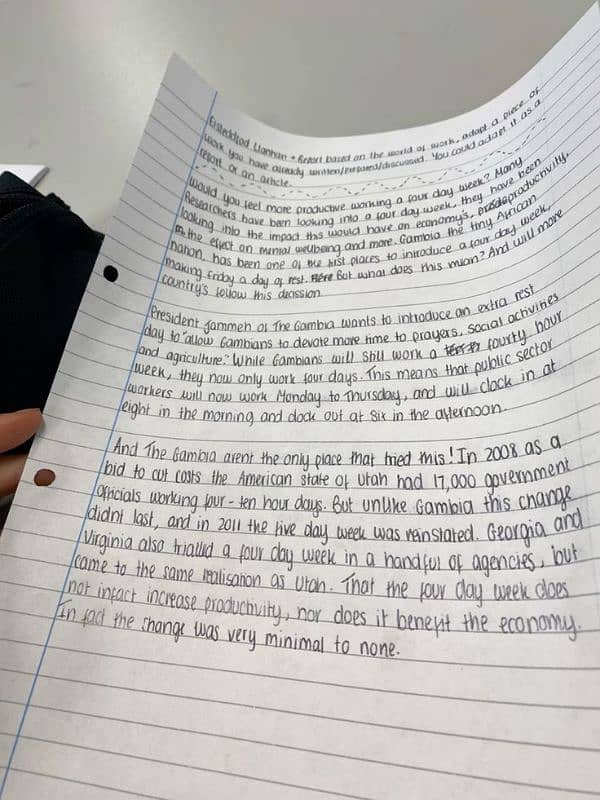 Eisteddfod Llanhari - Report based on the world of work, adapt a piece of
work you have already written/prepared/discussed. You could adapt it as a
report or an article.
Would you feel more productive working a four day week? Many
Researchers have been looking into a four day week, they have been
looking into the impact this would have on economy's, productivity,
the effect on mental wellbeing and more. Gambia the tiny African
nation, has been one of the first places to introduce a four day week,
making Friday a day of rest. But what does this mean? And will more
country's follow this decission.
President Jammeh of The Gambia wants to introduce an extra rest
day to "allow Gambians to devote more time to prayers, social activities
and agriculture." While Gambians will still work a fourty hour
week, they now only work four days. This means that public sector
workers will now work Monday to Thursday, and will clock in at
eight in the morning and clock out at six in the afternoon.
And The Gambia arent the only place that tried this! In 2008 as a
bid to cut costs the American state of Utah had 17,000 government
officials working four-ten hour days. But unlike Gambia this change
didnt last, and in 2011 the five day week was reinstated. Georgia and
Virginia also trialled a four day week in a handful of agencies, but
came to the same realisation as Utah. That the four day week does
not infact increase productivity, nor does it benefit the economy.
In fact the change was very minimal to none.